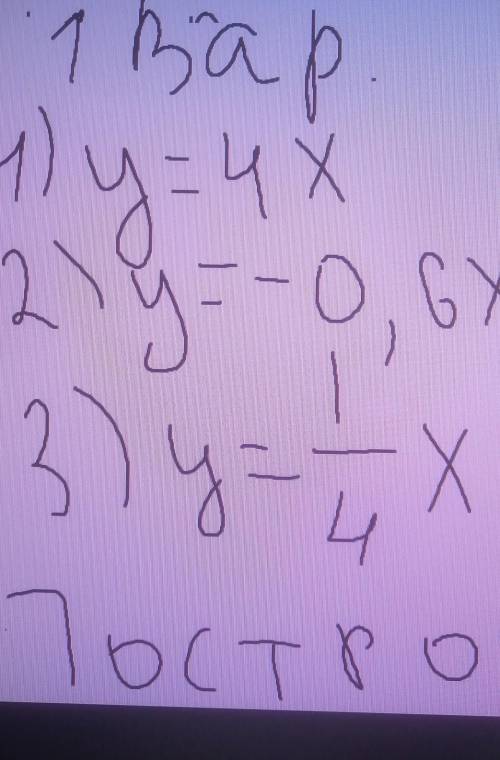 1 Вар.
1) y = 4x
2) y = -0,6x
3) y = 1/4 x
Постро